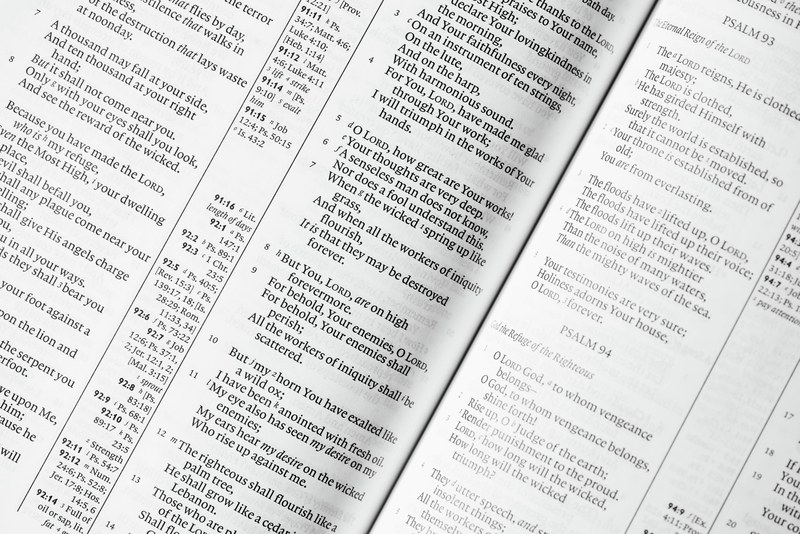 that flies by day,
the terror
silence that walks in
of the destruction that lays waste
at noonday.
7 A thousand may fall at your side,
And ten thousand at your right
hand;
But it shall not come near you.
8 Only with your eyes shall you look,
And see the reward of the wicked.
Because you have made the LORD,
who is my refuge,
Even the Most High, your dwelling
place,
evil shall befall you,
shall any plague come near your
shall give His angels charge
you in all your ways.
they shall bear you
your foot against a
upon the lion and
the serpent you
Me,
him;
because he
will
91:11
Ps.
34:7; Matt. 4:6;
Luke 4:10;
[Heb. 1:14]
91:12 Matt.
4:6; Luke 4:11
lift strike
91:14 [Ps.
9:10] exalt
him
91:15 Job
12:4; Ps. 50:15
Is. 43:2
91:16 Lit.
length of days
92:1 Ps.
147:1
92:2 Ps. 89:1
92:3 1 Chr.
23:5
92:5 Ps. 40:5;
[Rev. 15:3] Ps.
139:17, 18; [Is.
28:29; Rom.
11:33, 34]
92:6 Ps. 73:22
92:7 Job
12:6; Ps. 37:1,
2; Jer. 12:1, 2;
[Mal. 3:15]
sprout
92:8 [Ps.
83:18]
92:9 Ps. 68:1
92:10 Ps.
89:17 Ps.
23:5
Strength
92:11 Ps. 54:7
92:12 Num.
24:6; Ps. 52:8;
Jer. 17:8; Hos.
14:5, 6
92:14 Full of
oil or sap, lit.
fat
thanks to the LORD,
praises to Your name,
Most High;
3 declare Your lovingkindness in
the morning,
And Your faithfulness every night,
On an instrument of ten strings,
4 On the lute,
And on the harp,
With harmonious sound.
For You, LORD, have made me glad
through Your work;
I will triumph in the works of Your
hands.
5 O LORD, how great are Your works!
Your thoughts are very deep.
6 A senseless man does not know,
Nor does a fool understand this.
7 When the wicked spring up like
grass,
And when all the workers of iniquity
flourish,
It is that they may be destroyed
forever.
8 But You, LORD, are on high
forevermore.
9 For behold, Your enemies, O LORD,
For behold, Your enemies shall
perish;
All the workers of iniquity shall be
scattered.
10 But my horn You have exalted like
a wild ox;
I have been anointed with fresh oil.
11 My eye also has seen my desire on my
enemies;
My ears hear my desire on the wicked
Who rise up against me.
12 The righteous shall flourish like a
palm tree,
He shall grow like a cedar in
Lebanon.
13 Those who are
of the LORD
14 Shall
PSALM 93
The Eternal Reign of the LORD
1 The LORD reigns, He is clothed
majesty;
The LORD is clothed,
He has girded Himself with
strength.
Surely the world is established, so
that it cannot be moved.
2 Your throne is established from of
old;
You are from everlasting.
3 The floods have lifted up, O LORD,
The floods have lifted up their voice;
The floods lift up their waves.
4 The LORD on high is mightier
Than the noise of many waters,
Than the mighty waves of the sea.
5 Your testimonies are very sure;
Holiness adorns Your house,
O LORD, forever.
PSALM 94
God the Refuge of the Righteous
1 O LORD God, to whom vengeance
belongs—
O God, to whom vengeance belongs,
shine forth!
2 Rise up, O Judge of the earth;
Render punishment to the proud.
3 LORD, how long will the wicked,
How long will the wicked
triumph?
4 They utter speech, and
insolent things;
All the workers of
themselves
They
94:4
94:7 Job
22:13;
pay attention
94:9 [Ex.
4:11; Prov.
17
18 If
19 In the
within
Your
20